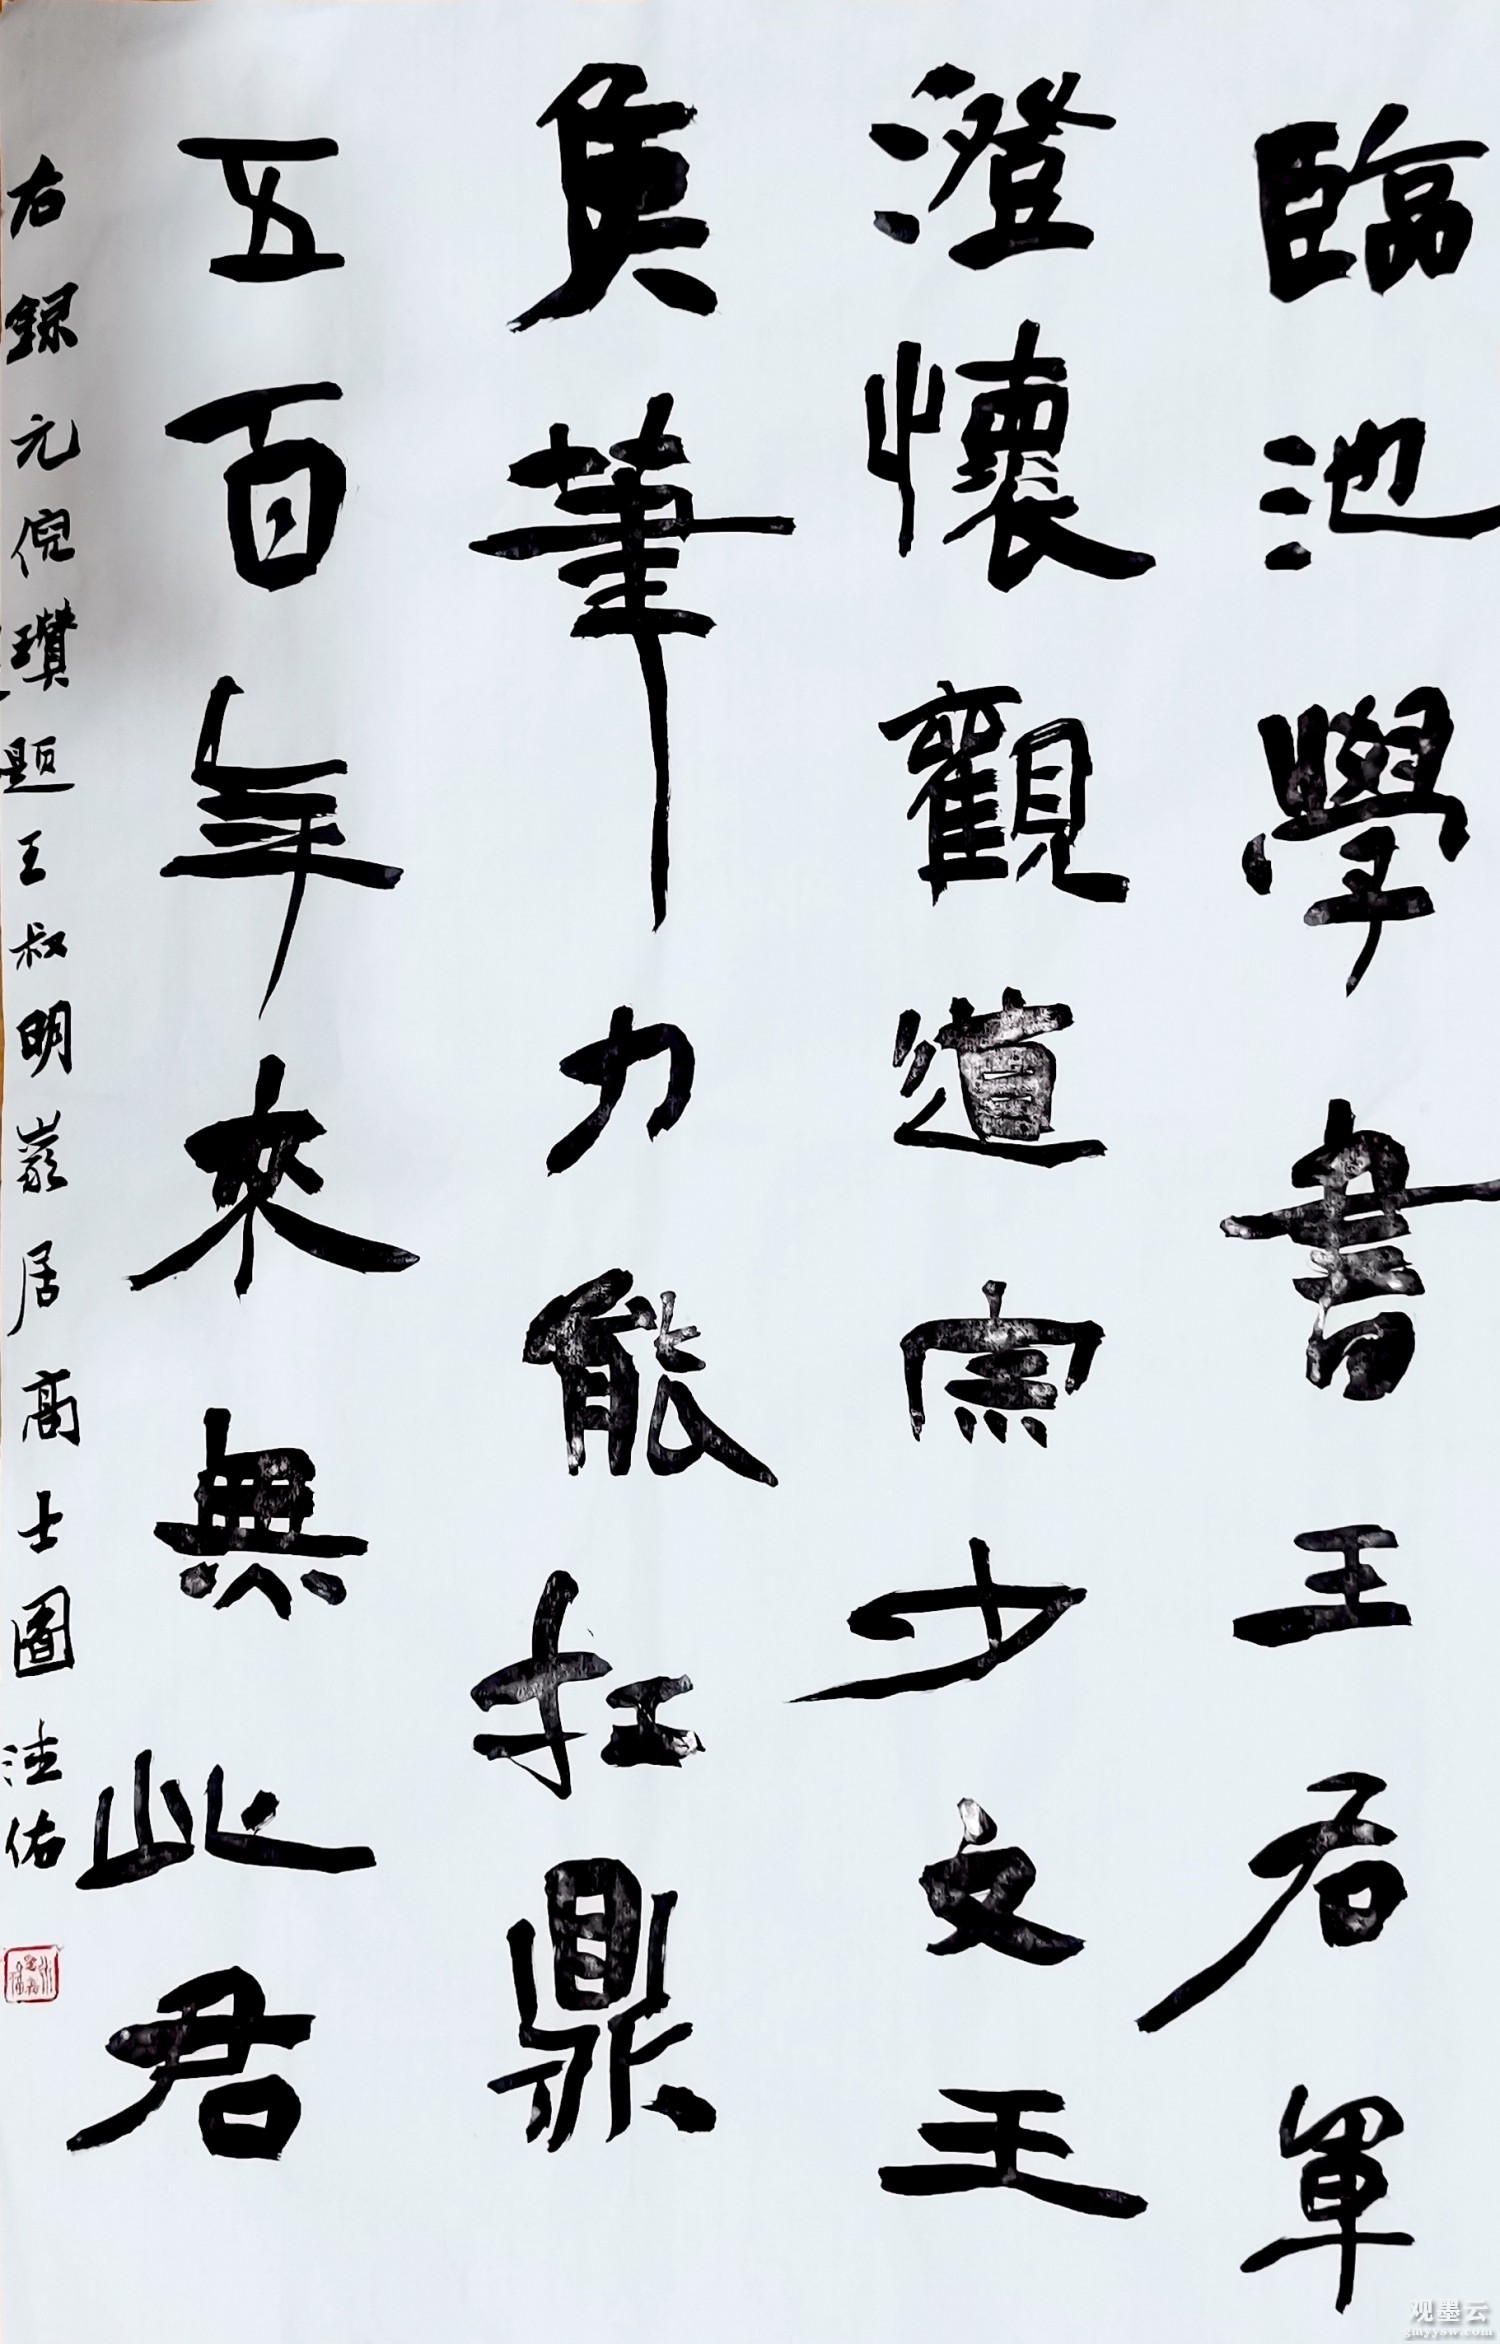 臨池學書王右軍
澄懷觀道宗少文王
矦筆力能扛鼎
五百年來無此君
右録元倪瓚題王叔明巖居高士圖 佑
观墨云
gmyysw.com